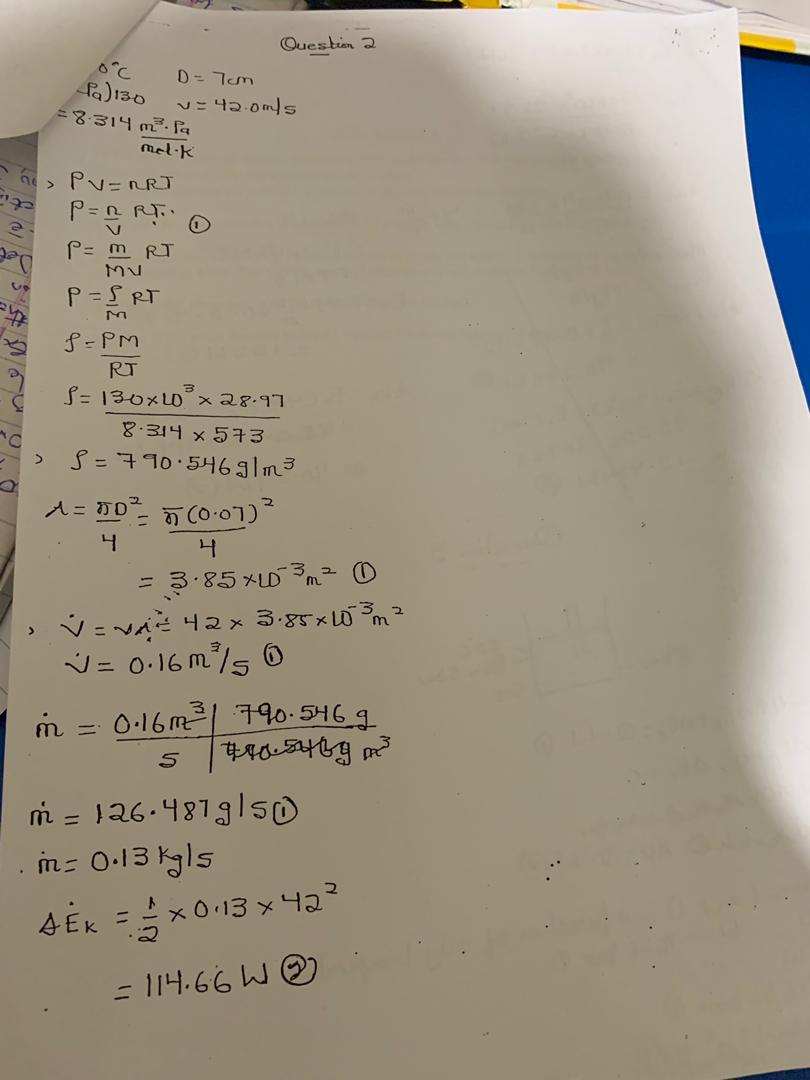 Question 2
0°C D = 7cm
Pa)130 v = 42.0m/s
= 8.314 m³·Pa
mol·K
> PV = nRT
P = n RT ①
V
P = m RT
MV
P = ρ RT
M
ρ = PM
RT
ρ = 130×10³ × 28.97
8.314 × 573
> ρ = 790.546 g/m³
A = πD² = π(0.07)²
4 4
= 3.85×10⁻³m² ①
> V̇ = vA = 42 × 3.85×10⁻³m²
V̇ = 0.16m³/s ①
ṁ = 0.16m³ | 790.546 g
s | m³
ṁ = 126.487g/s ①
ṁ = 0.13 Kg/s
ΔĖk = 1 × 0.13 × 42²
2
= 114.66 W ②